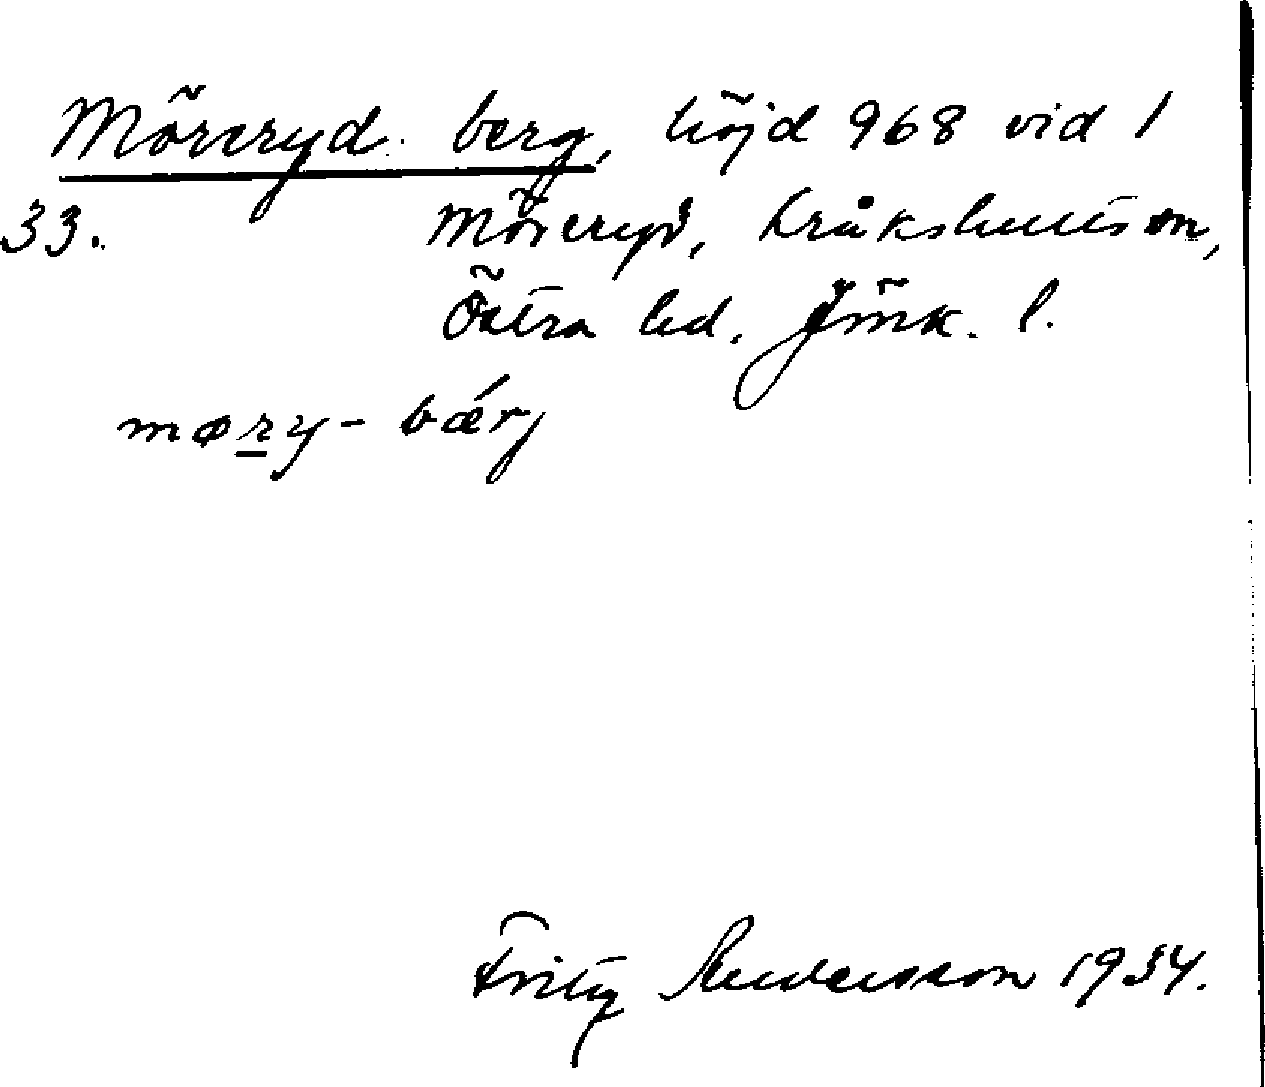 Möreryd. berg, höjd 968 vid 1
33. Möreryd, Kråkshults sn,
Östra hd. Jönk. l.
møry - bǽrj
Fritz Andersson 1934.